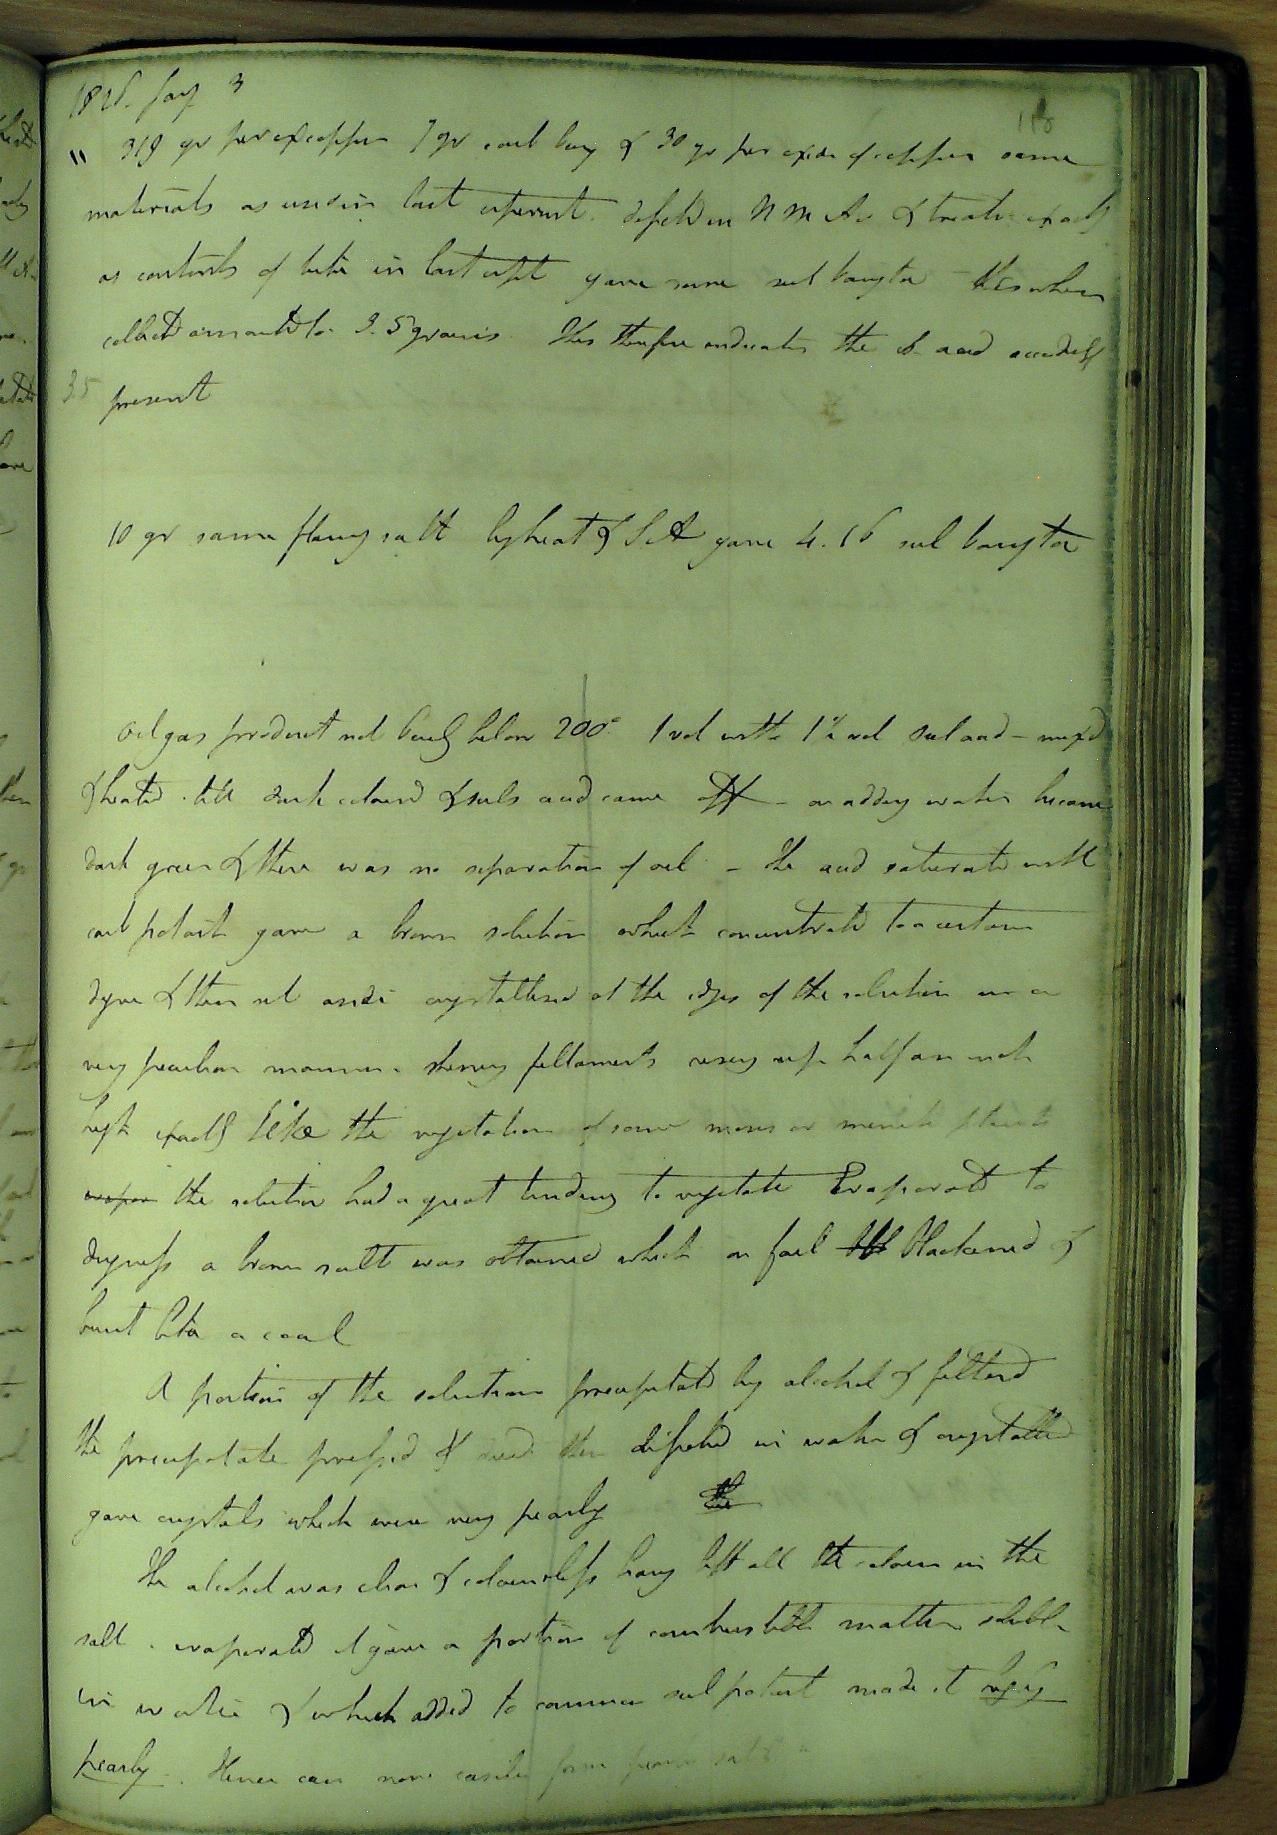 1826. Jany 3
118
" 318 gr per ox copper 7 gr carb bary & 30 gr per oxide of copper same
materials as used in last experiment. dissolved in N M A & treated exactly
as contents of tube in last expt gave some sul baryta this when
collected amounted to 3.5 grains. This therefore indicates the S. acid accidentally
35 present
10 gr same flamy salt by heat & S A gave 4.16 sul baryta
Oil gas product not boilg below 200° 1 vol with 1½ vol Sul acid - mixd
& heated till dark coloured & suls acid came off - on addng water became
dark green & there was no separation of oil - the acid saturated with
carb potash gave a brown solution which concentrated to a certain
degree & then set aside crystallised at the edges of the solution in a
very peculiar manner. shinny fillaments rising up half an inch
high exactly like the vegetation of some moss or minute plants
the solution had a great tendency to vegetate Evaporated to
dryness a brown salt was obtained which on foil blackened &
burnt like a coal
A portion of the solution precipitated by alcohol & filterd
the precipitate pressed & dried then dissolved in water & crystallized
gave crystals which were very pearly the
The alcohol was clear & colourless havg left all the colour in the
salt. evaporated it gave a portion of combustible matter soluble
in water & which added to common sul potash made it very
pearly. Hence can now easily form pearly salts